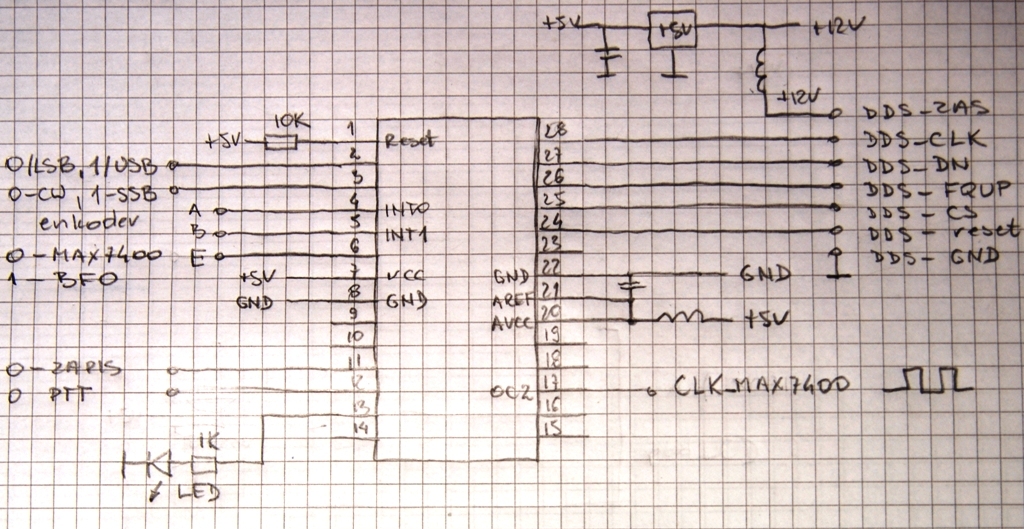 +5V +5V +12V
+12V DDS-ZAS
10K 1 28 DDS-CLK
+5V Reset
0/LSB, 1/USB 2 27 DDS-DN
0-CW, 1-SSB 3 26 DDS-FQUP
enkoder A 4 INT0 25 DDS-CS
B 5 INT1 24 DDS-reset
0-MAX7400 E 6 23 DDS-GND
1-BFO +5V 7 VCC GND 22 GND
GND 8 GND AREF 21
9 AVCC 20 +5V
10 19
0-ZAPIS 11 18
0 PTT 12 OC2 17 CLK_MAX7400
13 16
14 15
1K
LED